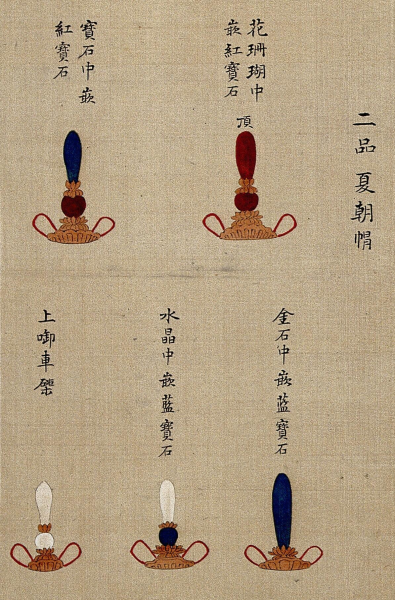 二品夏朝帽
頂
花珊瑚中
嵌紅寶石
寶石中嵌
紅寶石
金石中嵌藍寶石
水晶中嵌藍寶石
上御車